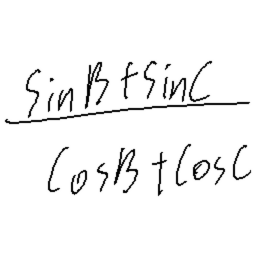 sinB+sinC
cosB+cosC